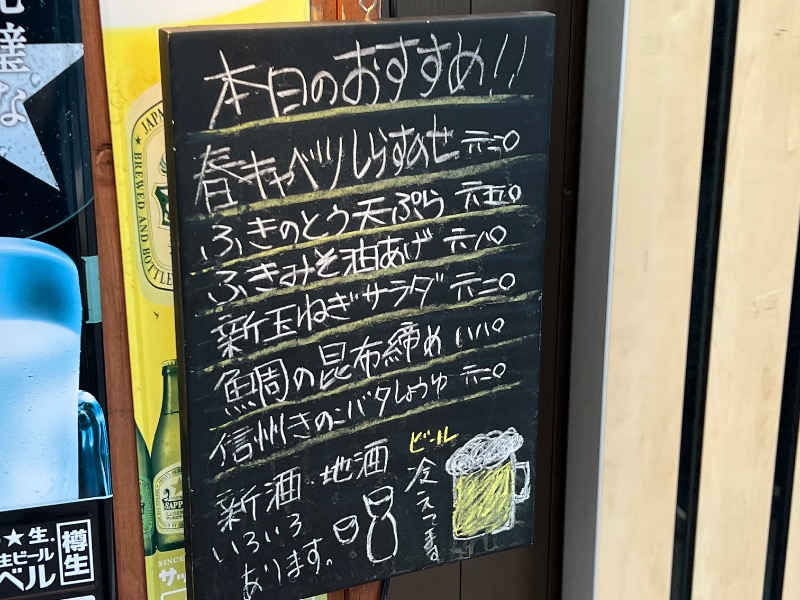 本日のおすすめ!!
春キャベツしらすのせ 六二〇
ふきのとう天ぷら 六五〇
ふきみそ油あげ 六八〇
新玉ねぎサラダ 六二〇
鯛の昆布締め 八八〇
信州きのこバタしょうゆ 六二〇
新酒・地酒
いろいろ
あります。
ビール
冷えてます
璧な
JAPAN
BREWED AND BOTTLE
SAPPO
SINCE
サッ
★生.
生ビール
ベル
樽生